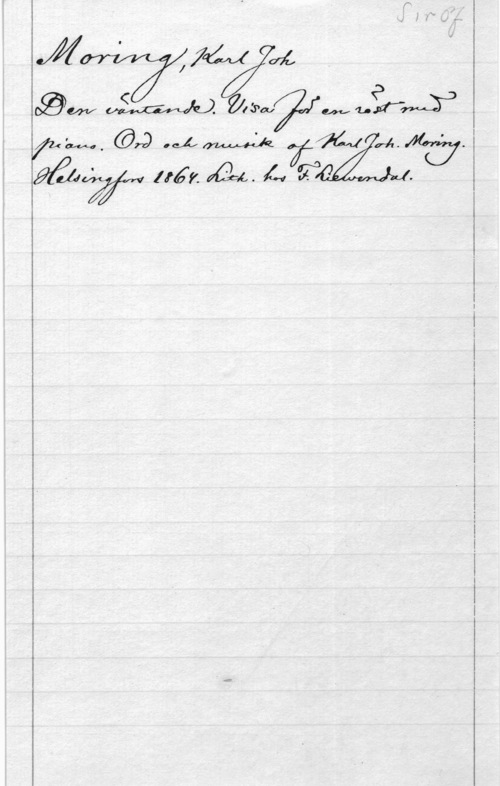 S 1 r Of
Moring, Karl Joh
Den väntande. Visa för en röst med
piano. Ord och musik af Karl Joh. Moring.
Helsingfors 1864. Lith. hos F. Liewendal.